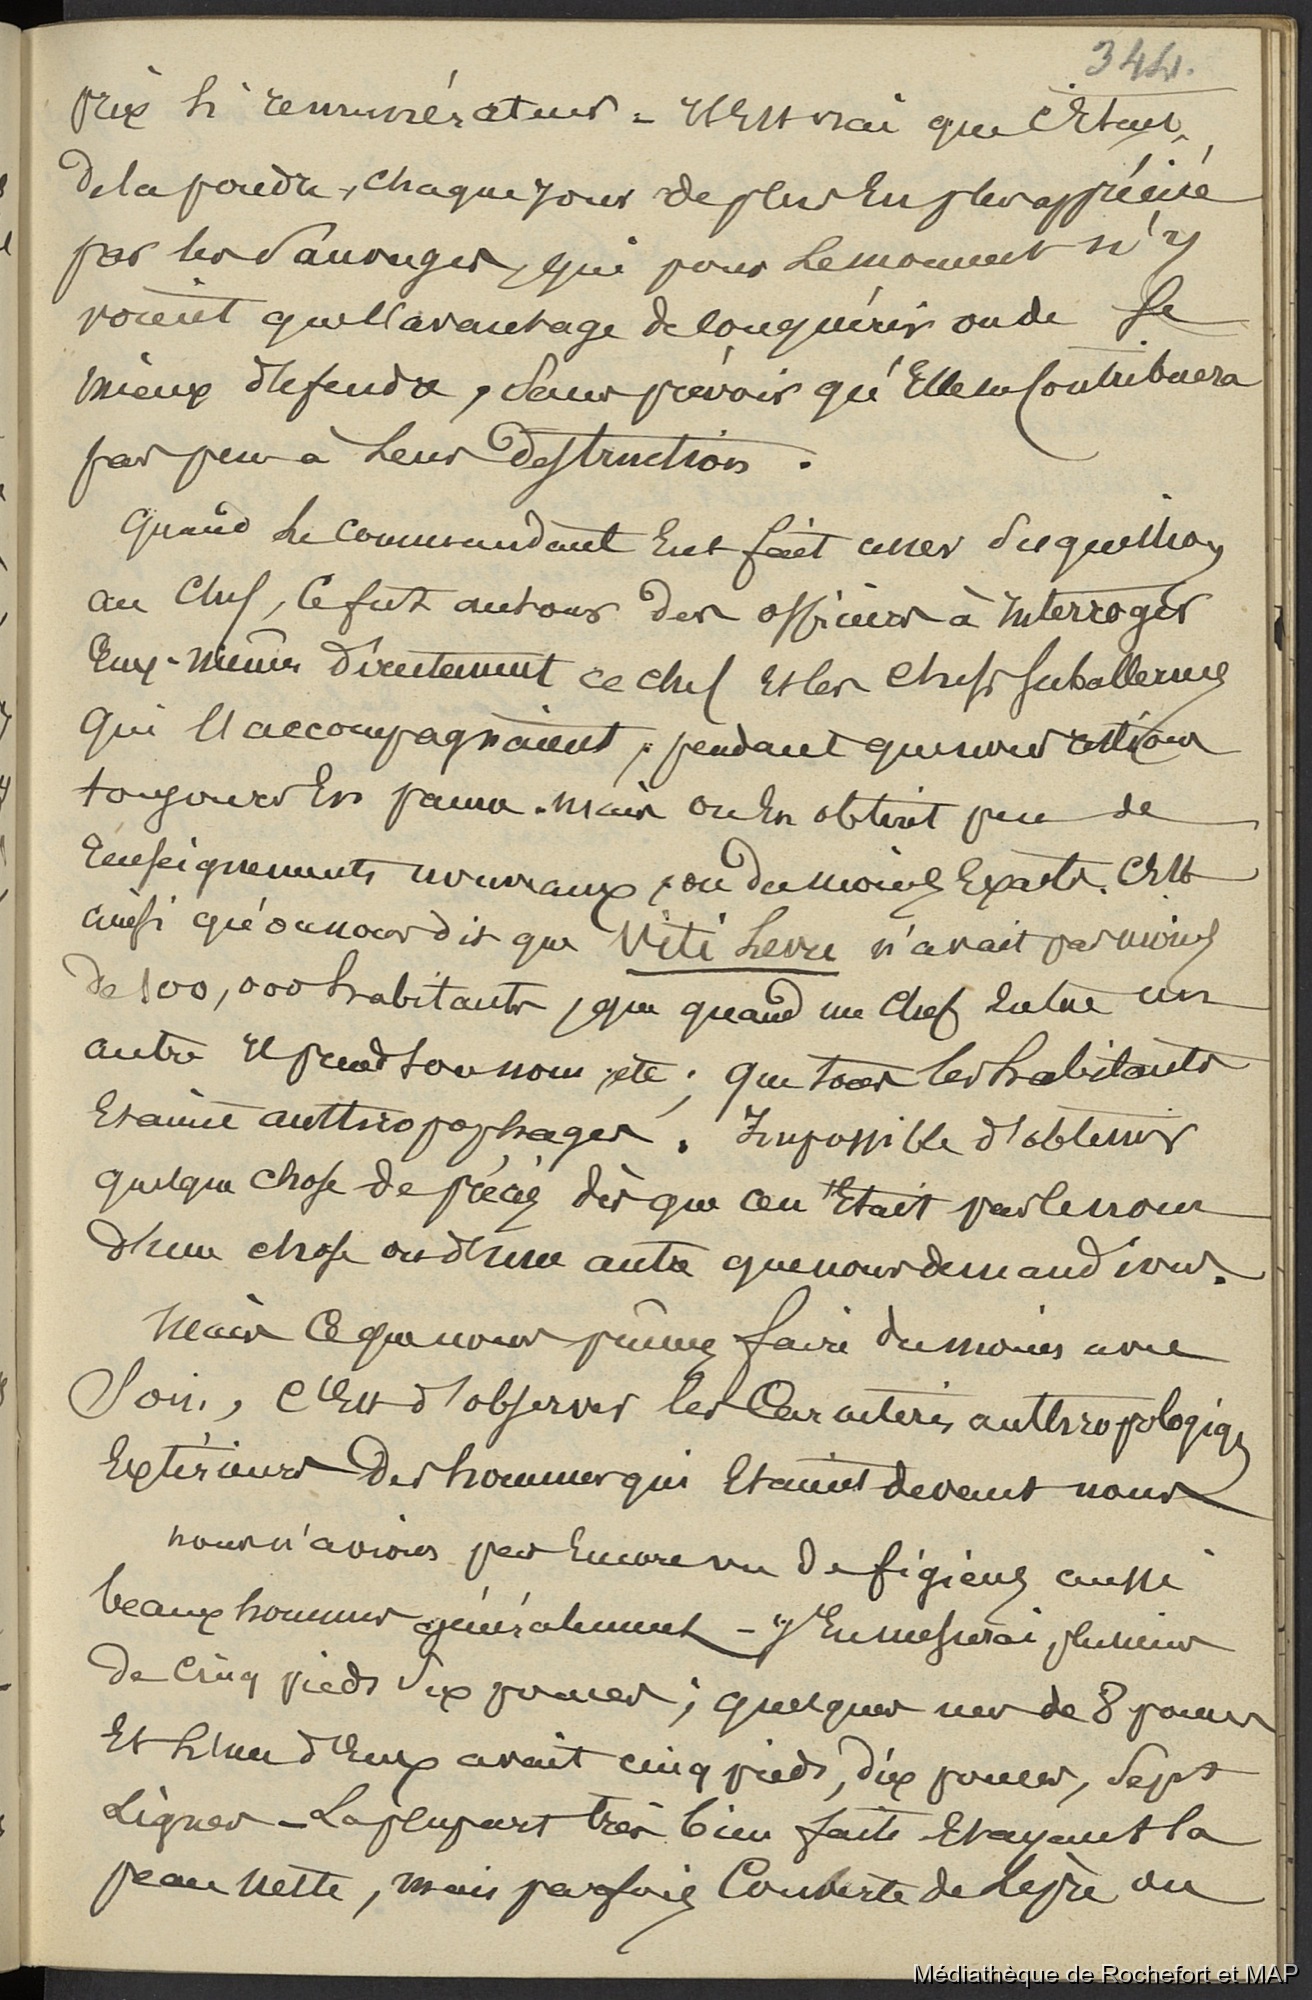 344.
prix si rémunérateur - Il est vrai que c'était
de la poudre, chaque jour de plus en plus appréciée
par les Sauvages, qui pour le moment n'y
voient que l'avantage de conquérir ou de se
mieux défendre, sans prévoir qu'elle ne contribuera
pas peu à leur destruction.
Quand le commandant eut fait assez de questions
au chef, ce fut au tour des officiers à interroger
eux-mêmes directement ce chef et les chefs subalternes
qui l'accompagnaient, pendant que nous restions
toujours en panne. Mais on en obtint peu de
renseignements nouveaux, ou du moins exacts. C'est
ainsi qu'on nous dit que Viti Levu n'avait pas moins
de 100,000 habitants, que quand un chef en tue un
autre il prend son nom, etc; que tous les habitants
étaient anthropophages. Impossible d'obtenir
quelque chose de précis dès que ce n'était pas le nom
d'une chose ou d'une autre que nous demandions.
Mais ce que nous pûmes faire du moins avec
soin, c'est d'observer les caractères anthropologiques
extérieurs des hommes qui étaient devant nous
nous n'avions pas encore vu de figiens aussi
beaux hommes généralement - j'en mesurai plusieurs
de cinq pieds six pouces; quelques uns de 8 pouces
et l'un d'eux avait cinq pieds, dix pouces, sept
lignes - La plupart très bien faits et ayant la
peau nette, mais parfois couverte de lèpre ou
Médiathèque de Rochefort et MAP